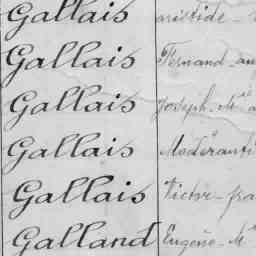 Gallais aristide -
Gallais Fernand - au
Gallais Joseph - M.el a
Gallais Moderanti
Gallais Victor - fra
Galland Eugène - M.